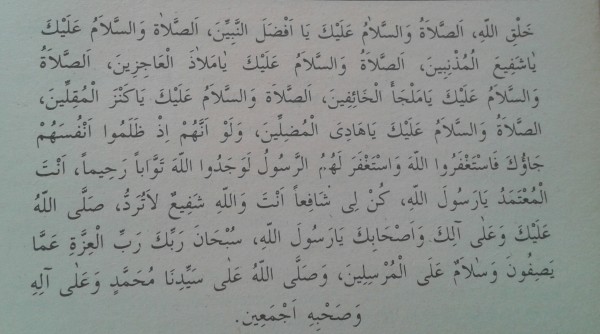 خَلْقِ اللّٰهِ، اَلصَّلَاةُ وَالسَّلاَمُ عَلَيْكَ يَا اَفْضَلَ النَّبِيِّنَ، اَلصَّلاٰةُ وَالسَّلاَمُ عَلَيْكَ
يَاشَفِيعَ الْمُذْنِبِينَ، اَلصَّلاَةُ وَالسَّلاَمُ عَلَيْكَ يَامَلاَذَ الْعَاجِزِينَ، اَلصَّلاَةُ
وَالسَّلاَمُ عَلَيْكَ يَامَلْجَأَ الْخَائِفِينَ، اَلصَّلاَة وَالسَّلاَمُ عَلَيْكَ يَاكَنْزَ الْمُقِلِّينَ،
اَلصَّلاَةُ وَالسَّلاَمُ عَلَيْكَ يَاهَادِىَ الْمُضِلِّينَ، وَلَوْ اَنَّهُمْ اِذْ ظَلَمُوا اَنْفُسَهُمْ
جَاؤُكَ فَاسْتَغْفَرُوا اللّٰهَ وَاسْتَغْفَرَ لَهُمُ الرَّسُولُ لَوَجَدُوا اللّٰهَ تَوَّاباً رَحِيماً، اَنْتَ
الْمُعْتَمَدُ يَارَسُولَ اللّٰهِ، كُنْ لِى شَافِعاً اَنْتَ وَاللّٰهِ شَفِيعٌ لاَتُرَدُّ، صَلَّى اللّٰهُ
عَلَيْكَ وَعَلٰى آلِكَ وَاَصْحَابِكَ يَارَسُولَ اللّٰهِ، سُبْحَانَ رَبِّكَ رَبِّ الْعِزَّةِ عَمَّا
يَصِفُونَ وَسَلاَمٌ عَلَى الْمُرْسِلِينَ، وَصَلَّى اللّٰهُ عَلٰى سَيِّدِنَا مُحَمَّدٍ وَعَلٰى آلِهِ
وَصَحْبِهِ اَجْمَعِين.